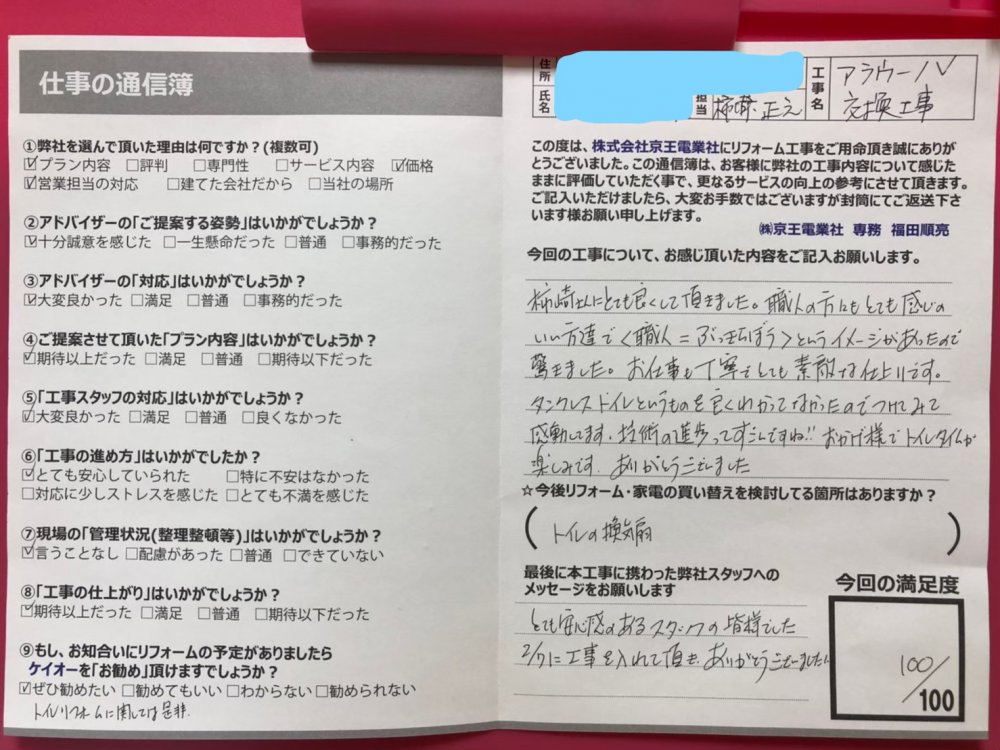 仕事の通信簿
①弊社を選んで頂いた理由は何ですか?(複数可)
☑プラン内容 □評判 □専門性 □サービス内容 ☑価格
☑営業担当の対応 □建てた会社だから □当社の場所
②アドバイザーの「ご提案する姿勢」はいかがでしょうか?
☑十分誠意を感じた □一生懸命だった □普通 □事務的だった
③アドバイザーの「対応」はいかがでしょうか?
☑大変良かった □満足 □普通 □事務的だった
④ご提案させて頂いた「プラン内容」はいかがでしょうか?
☑期待以上だった □満足 □普通 □期待以下だった
⑤「工事スタッフの対応」はいかがでしょうか?
☑大変良かった □満足 □普通 □良くなかった
⑥「工事の進め方」はいかがでしたか?
☑とても安心していられた □特に不安はなかった
□対応に少しストレスを感じた □とても不満を感じた
⑦現場の「管理状況(整理整頓等)」はいかがでしょうか?
☑言うことなし □配慮があった □普通 □できていない
⑧「工事の仕上がり」はいかがでしょうか?
☑期待以上だった □満足 □普通 □期待以下だった
⑨もし、お知合いにリフォームの予定がありましたら
ケイオーを「お勧め」頂けますでしょうか?
☑ぜひ勧めたい □勧めてもいい □わからない □勧められない
トイレリフォームに関しては是非.
住所
氏名
担当 柿崎 正之
工事名 アラウーノV
交換工事
この度は、株式会社京王電業社にリフォーム工事をご用命頂き誠にありが
とうございました。この通信簿は、お客様に弊社の工事内容について感じた
ままに評価していただく事で、更なるサービスの向上の参考にさせて頂きます。
ご記入いただけましたら、大変お手数ではございますが封筒にてご返送下さ
います様お願い申し上げます。
㈱京王電業社 専務 福田順亮
今回の工事について、お感じ頂いた内容をご記入お願いします。
柿崎さんにとても良くして頂きました。職人の方にもとても感じの
いい方達で<職人=ぶっきらぼう>というイメージがあったので
驚きました。お仕事も丁寧でとても素敵な仕上りです。
タンクレストイレというものを良くわかってなかったのでつけてみて
感動してます。技術の進歩ってすごいですね!!おかげ様でトイレタイムが
楽しみです.ありがとうございました
☆今後リフォーム・家電の買い替えを検討してる箇所はありますか?
(トイレの換気扇)
最後に本工事に携わった弊社スタッフへの
メッセージをお願いします
とても安心感のあるスタッフの皆様でした
2/7に工事を入れて頂き、ありがとうございました!
今回の満足度
100/100